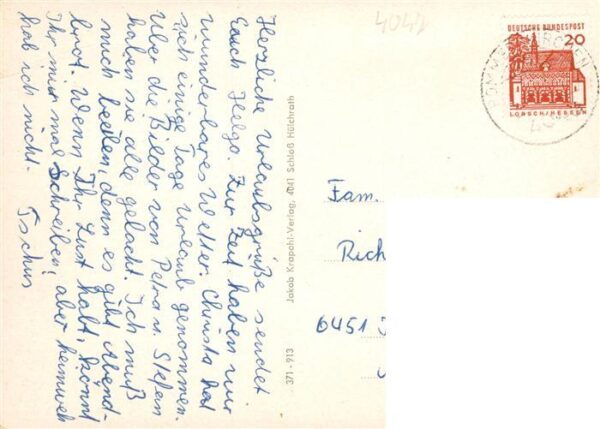 Herzliche Urlaubsgrüße sendet
Euch Helga. Zur Zeit haben wir
wunderbares Wetter. Christa hat
sich einige Tage Urlaub genommen.
Über die Bilder von Petra u. Stefan
haben sie alle gelacht. Ich muß
mich beeilen, denn es gibt Abend-
brot. Wenn Ihr Lust habt, könnt
Ihr mir mal schreiben, aber heimweh
hab ich nicht. Tschüs
Jakob Krapohl-Verlag, 4141 Schloß Hülchrath
371-913
4047
DEUTSCHE BUNDESPOST
20
LORSCH/HESSEN
Fam.
Rich
6451